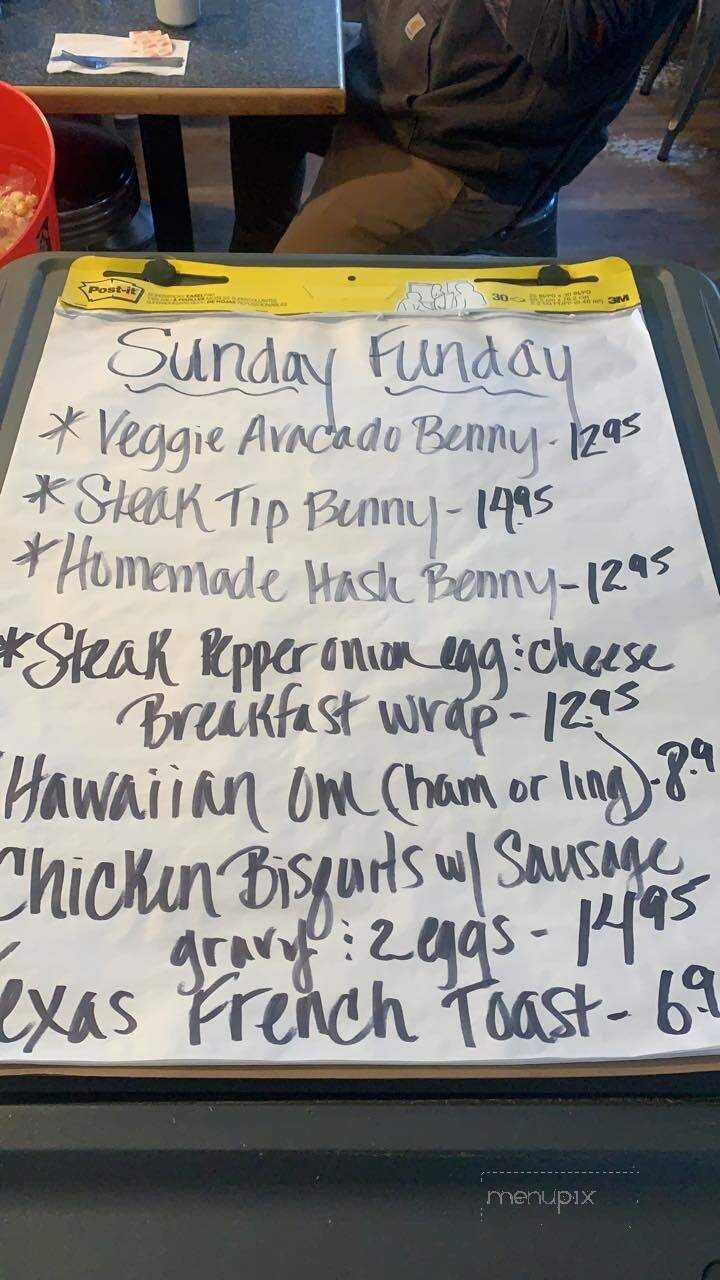 Post-it
30
3M
Sunday Funday
* Veggie Avacado Benny - 12.95
* Steak Tip Benny - 14.95
* Homemade Hash Benny - 12.95
* Steak Pepper onion egg & cheese
Breakfast wrap - 12.95
Hawaiian om (ham or ling) - 8.9
Chicken Bisquits w/ Sausage
gravy & 2 eggs - 14.95
Texas French Toast - 6.9
menupix